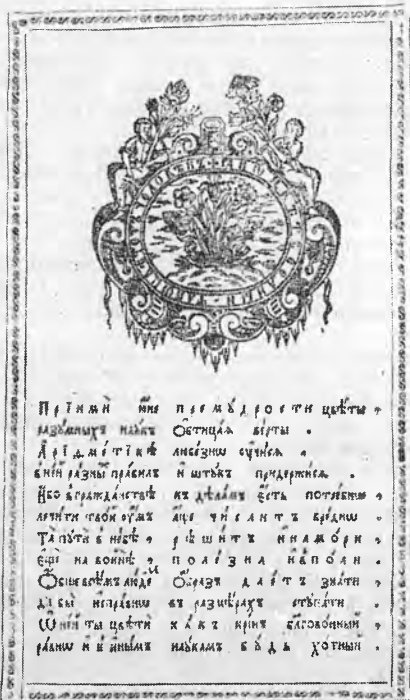 Прїимѝ ю҆́не премꙋдрости цвѣ́ты ,
разꙋмныхъ наꙋкъ Ѻ҆бтица́ѧ верты .
Арїѳметїкѣ любезнѡ ᲂу҆чи́сѧ ,
в ней разныхъ правилъ и҆ штꙋкъ придержисѧ .
И҆бо в гражданствѣ къ дѣламъ є҆сть потребнѡ ,
лечи́ти твой ᲂу҆́мъ а҆́ще числитъ вреднѡ .
Та̀ пꙋтѝ в небѣ , рѣши́тъ и҆ на мори ,
є҆ще на войнѣ , поле́зна и҆ в поли .
Ѻ҆бще всѣмъ люде́м Ѻ҆́бразъ дае́тъ зна́ти ,
дабы и҆справнѡ въ размѣрахъ стꙋпати .
Ѿ ней ты цвѣти какъ кри́нъ благово́нный ,
равнѡ и҆ в и҆ны́мъ наꙋкам бꙋдь хо́тный .